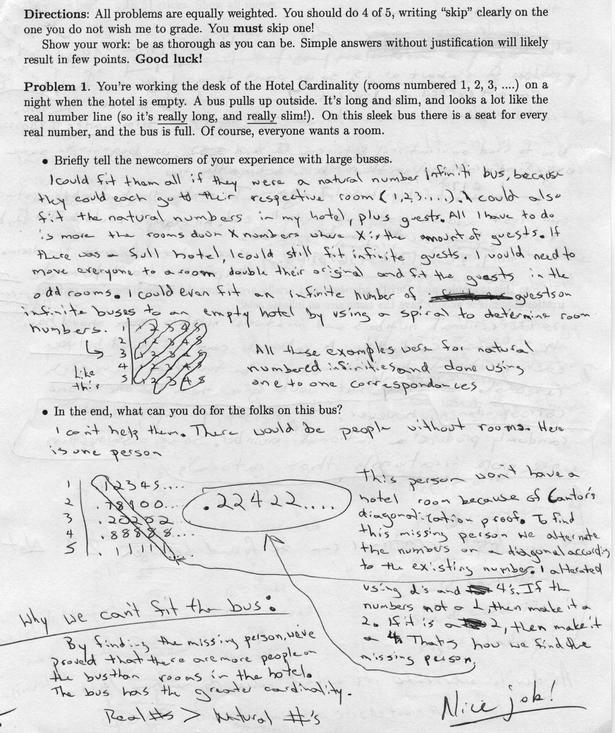 Directions: All problems are equally weighted. You should do 4 of 5, writing "skip" clearly on the
one you do not wish me to grade. You must skip one!
Show your work: be as thorough as you can. Simple answers without justification will likely
result in few points. Good luck!
Problem 1. You're working the desk of the Hotel Cardinality (rooms numbered 1, 2, 3, ....) on a
night when the hotel is empty. A bus pulls up outside. It's long and slim, and looks a lot like the
real number line (so it's really long, and really slim!). On this sleek bus there is a seat for every
real number, and the bus is full. Of course, everyone wants a room.
• Briefly tell the newcomers of your experience with large busses.
I could fit them all if they were a natural number Infiniti bus, because
they could each go to their respective room (1,2,3....). I could also
fit the natural numbers in my hotel, plus guests. All I have to do
is move the rooms down X numbers where X is the amount of guests. If
there was a full hotel, I could still fit infinite guests. I would need to
move everyone to a room double their original and fit the guests in the
odd rooms. I could even fit an infinite number of guests on
infinite buses to an empty hotel by using a spiral to determine room
numbers.
1 1 2 3 4 5
2 1 2 3 4 5
3 1 2 3 4 5
4 1 2 3 4 5
5 1 2 3 4 5
Like
this
All these examples were for natural
numbered infinities and done using
one to one correspondences
• In the end, what can you do for the folks on this bus?
I can't help them. There would be people without rooms. Here
is one person
1 .12345....
2 .78100...
3 .20202
4 .88888...
5 .11111
.22422....
This person won't have a
hotel room because of Cantor's
diagonalization proof. To find
this missing person we alternate
the numbers on a diagonal according
to the existing number. I alterated
using 2's and 4's. If the
numbers not a 2, then make it a
2. If it is a 2, then make it
a 4. That's how we find the
missing person.
Why we can't fit the bus:
By finding the missing person, we've
proved that there are more people on
the bus than rooms in the hotel.
The bus has the greater cardinality.
Real #s > Natural #'s
Nice job!